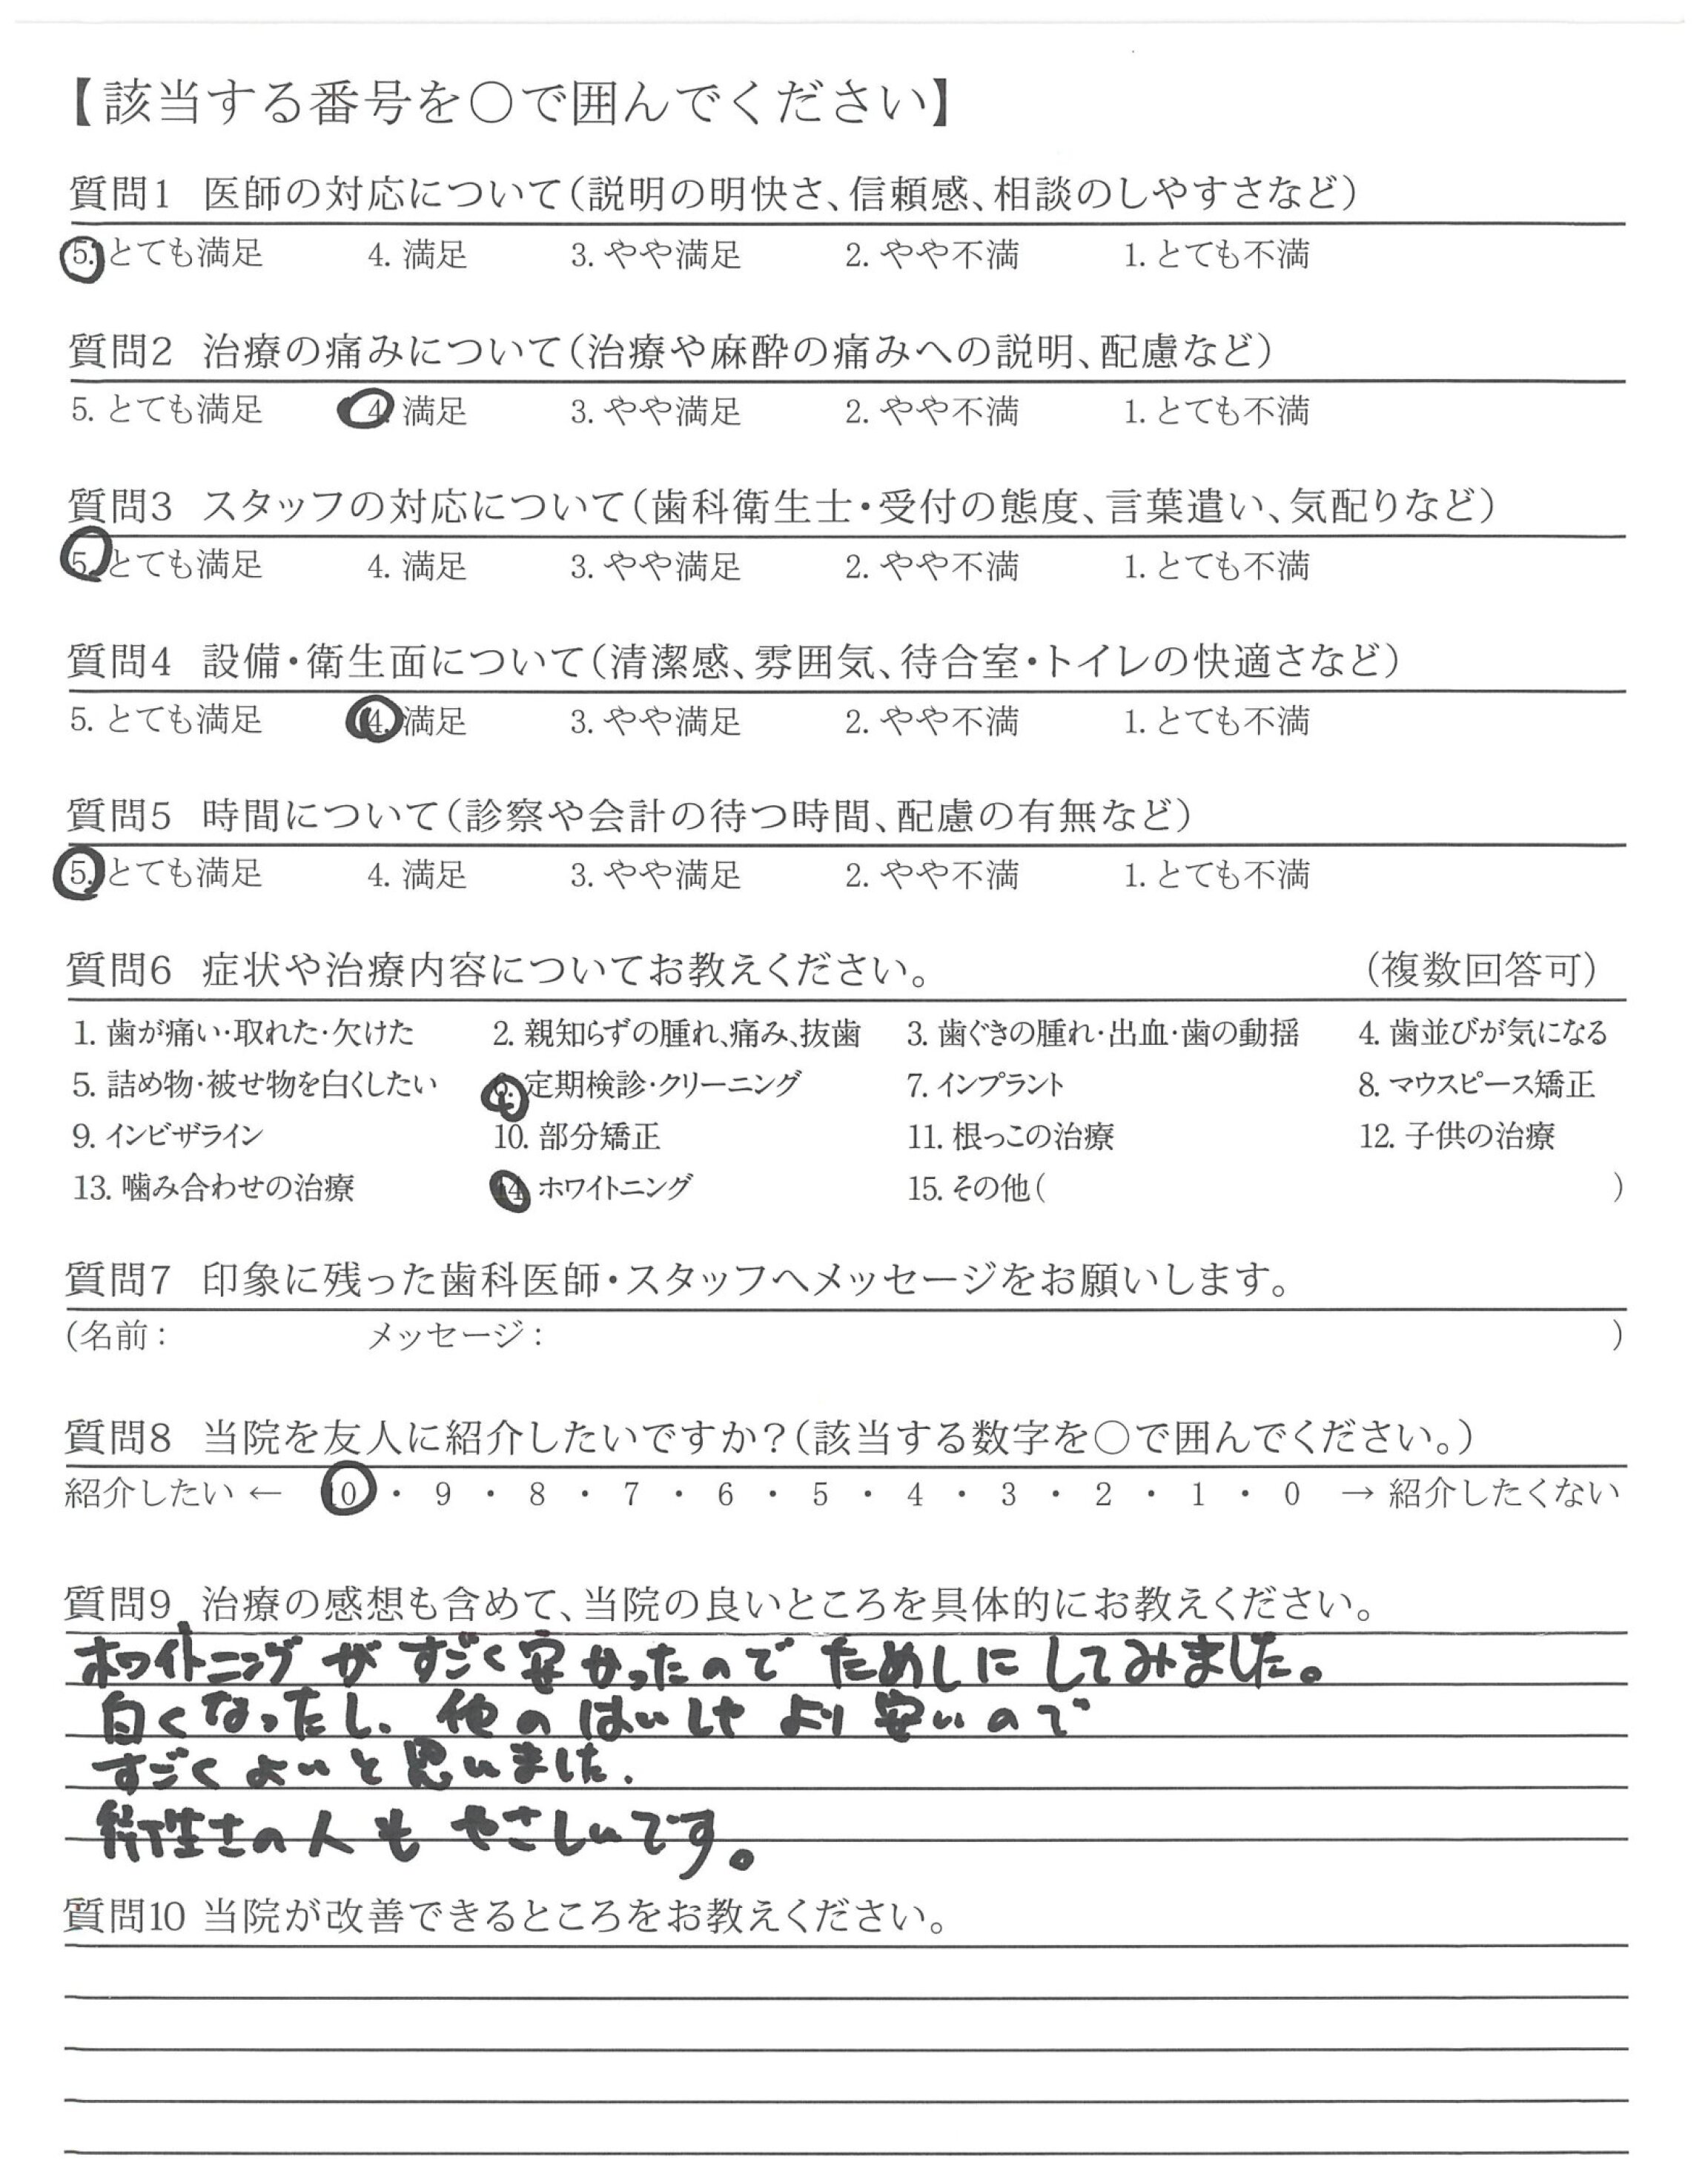 【該当する番号を○で囲んでください】
質問1 医師の対応について(説明の明快さ、信頼感、相談のしやすさなど)
5. とても満足 4. 満足 3. やや満足 2. やや不満 1. とても不満
質問2 治療の痛みについて(治療や麻酔の痛みへの説明、配慮など)
5. とても満足 4. 満足 3. やや満足 2. やや不満 1. とても不満
質問3 スタッフの対応について(歯科衛生士・受付の態度、言葉遣い、気配りなど)
5. とても満足 4. 満足 3. やや満足 2. やや不満 1. とても不満
質問4 設備・衛生面について(清潔感、雰囲気、待合室・トイレの快適さなど)
5. とても満足 4. 満足 3. やや満足 2. やや不満 1. とても不満
質問5 時間について(診察や会計の待つ時間、配慮の有無など)
5. とても満足 4. 満足 3. やや満足 2. やや不満 1. とても不満
質問6 症状や治療内容についてお教えください。 (複数回答可)
1. 歯が痛い・取れた・欠けた 2. 親知らずの腫れ、痛み、抜歯 3. 歯ぐきの腫れ・出血・歯の動揺 4. 歯並びが気になる
5. 詰め物・被せ物を白くしたい 6. 定期検診・クリーニング 7. インプラント 8. マウスピース矯正
9. インビザライン 10. 部分矯正 11. 根っこの治療 12. 子供の治療
13. 噛み合わせの治療 14. ホワイトニング 15. その他( )
質問7 印象に残った歯科医師・スタッフへメッセージをお願いします。
(名前: メッセージ: )
質問8 当院を友人に紹介したいですか?(該当する数字を○で囲んでください。)
紹介したい ← 10 ・ 9 ・ 8 ・ 7 ・ 6 ・ 5 ・ 4 ・ 3 ・ 2 ・ 1 ・ 0 → 紹介したくない
質問9 治療の感想も含めて、当院の良いところを具体的にお教えください。
ホワイトニングがすごく安かったのでためしにしてみました。
白くなったし、他のはいしゃより安いので
すごくよいと思いました.
衛生士の人もやさしいです。
質問10 当院が改善できるところをお教えください。